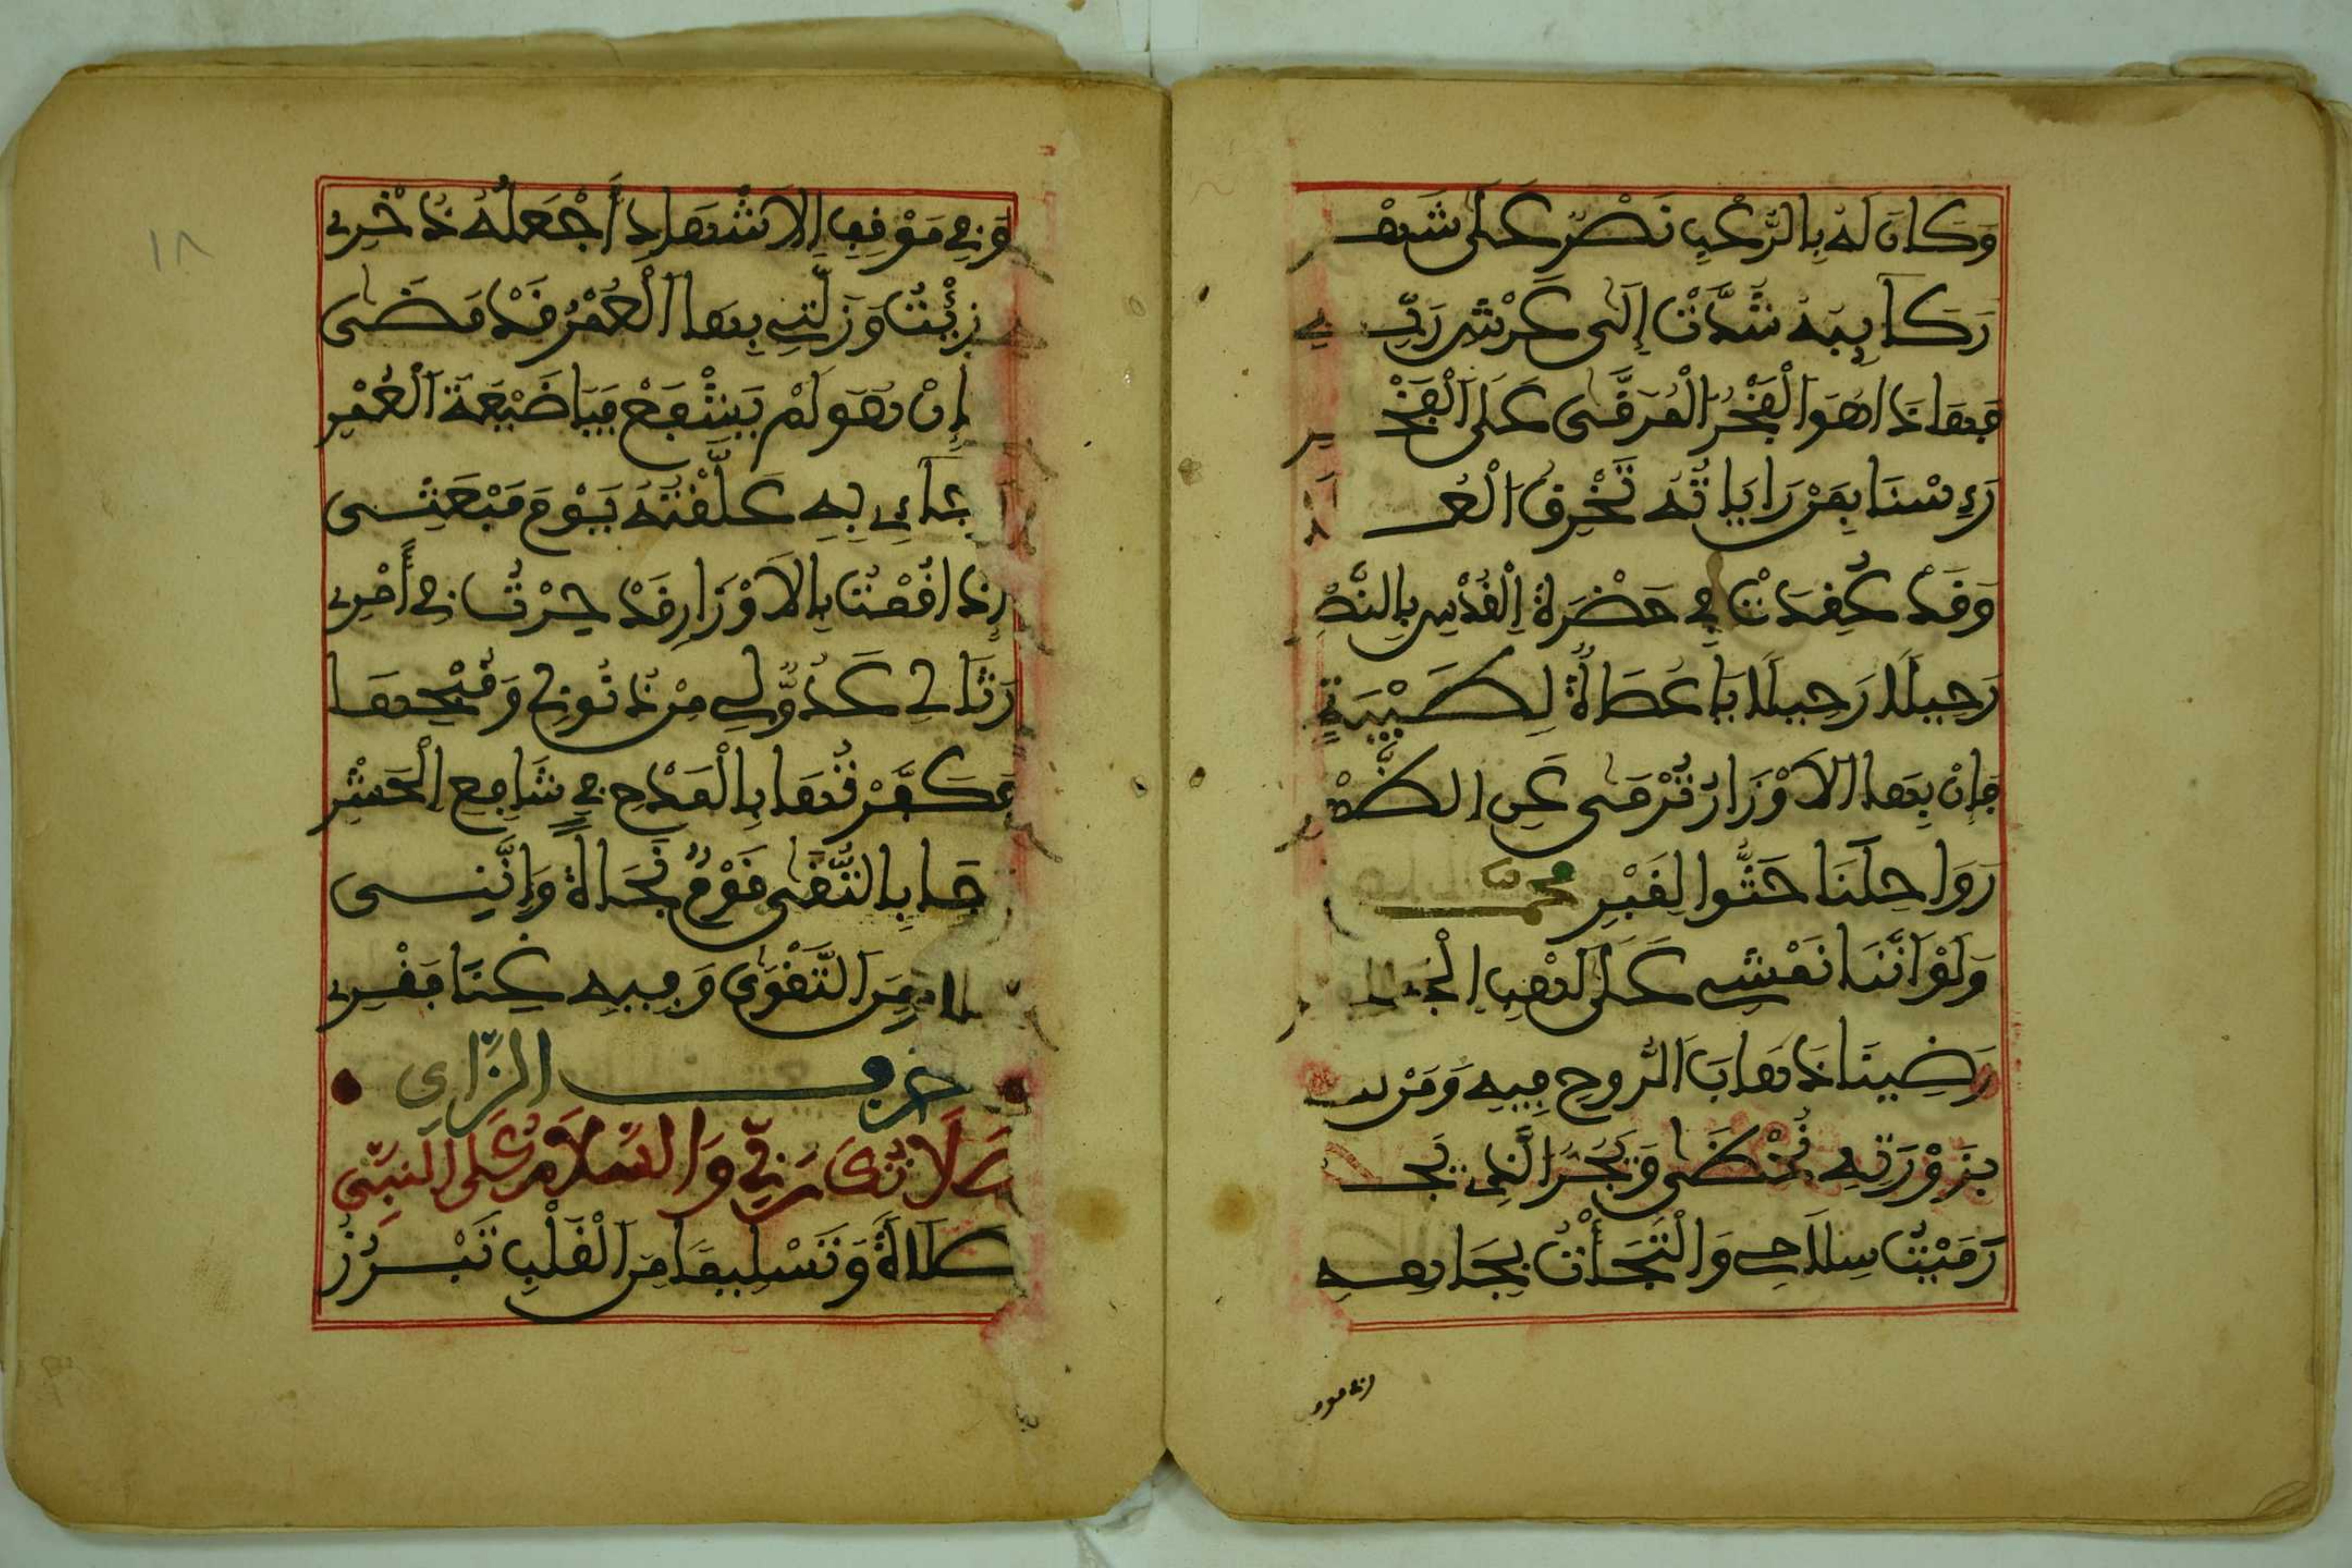 وَكَانَ لَهُ بِالرُّعْبِ نَصْرٌ عَلَى شَهْرِ
رَكَائِبُهُ شُدَّتْ إِلَى عَرْشِ رَبِّهِ
فَهَذَا هُوَ الْفَخْرُ الْمُرَقَّى عَلَى الْفَخْرِ
رَءِسْنَا بِمَنْ رَايَاتُهُ تَخْرِقُ الْعُ
وَقَدْ عُقِدَتْ فِي حَضْرَةِ الْقُدْسِ بِالنَّصْرِ
رَحِيلًا رَحِيلًا يَا عُصَاةُ لِطَيْبَةٍ
فَإِنْ بِهَا الْأَوْزَارُ تُرْمَى عَنِ الظَّهْرِ
رَوَاحِلَنَا حَثُّوا لِقَبْرِ مُحَمَّد
وَلَوْ أَنَّنَا نَمْشِي عَلَى لَهَبِ الْجَمْر
رَضِينَا ذَهَابَ الرُّوحِ فِيهِ وَمَنْ
بِزَوْرَتِهِ يُحْظَى وَيَجْرُ الَّذِي
رَمَيْتُ سِلَاحِي وَالْتَجَأْتُ بِجَاهِهِ
وَفِي مَوْقِفِ الْإِشْهَادِ أَجْعَلُهُ ذُخْرِي
رُزِئْتُ وَزَلَّتِي بِهَا الْعُمْرُ قَدْ مَضَى
إِنْ هُوَ لَمْ يَشْفَعْ فَيَا ضَيْعَةَ الْعُمْرِ
رَجَاءِي بِهِ عَلَّقْتُهُ يَوْمَ مَبْعَثِى
إِذَا قُمْتُ بِالْأَوْزَارِ قَدْ حِرْتُ فِي أَمْرِي
رَثَا لِي عَدُوِّي مِنْ ذُنُوبِي وَقُبْحِهَا
فَكَفَّرْتُهَا بِالْمَدْحِ فِي شَافِعِ الْحَشْرِ
بِالتُّقَى قَوْمٌ نَجَاةً وَإِنَّنِى
مِنَ التَّقْوَى وَفِيهِ غِنَا فَقْرِي
حَرف الزَّاي
وَالسَّلَامُ عَلَى النَّبِّى
صَلَاةً وَتَسْلِيمًا مِنَ الْقَلْبِ تَبْرُزُ
١٨